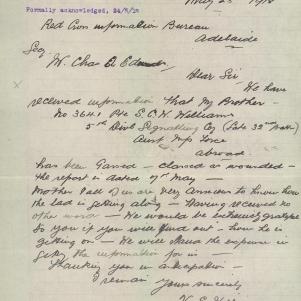 May 23 1918
Formally acknowledged, 24/5/18
Red Cross information Bureau
Adelaide
Secy
W. Chas A Edmunds
Dear Sir
We have
received information that My Brother -
No 3641 Pte E. C. W. Williams
5th Divl Signalling Coy (late 32nd Battn)
Aust Imp Force
abroad
has been Gassed - classed as wounded -
the report is dated 1st May -
Mother & all of us are very Anxious to know how
the lad is getting along - Having received no
other word - We would be exceedingly grateful
to you if you will find out - how he is
getting on - We will stand the expense in
getting the information for us -
Thanking you in anticipation -
I remain yours sincerely